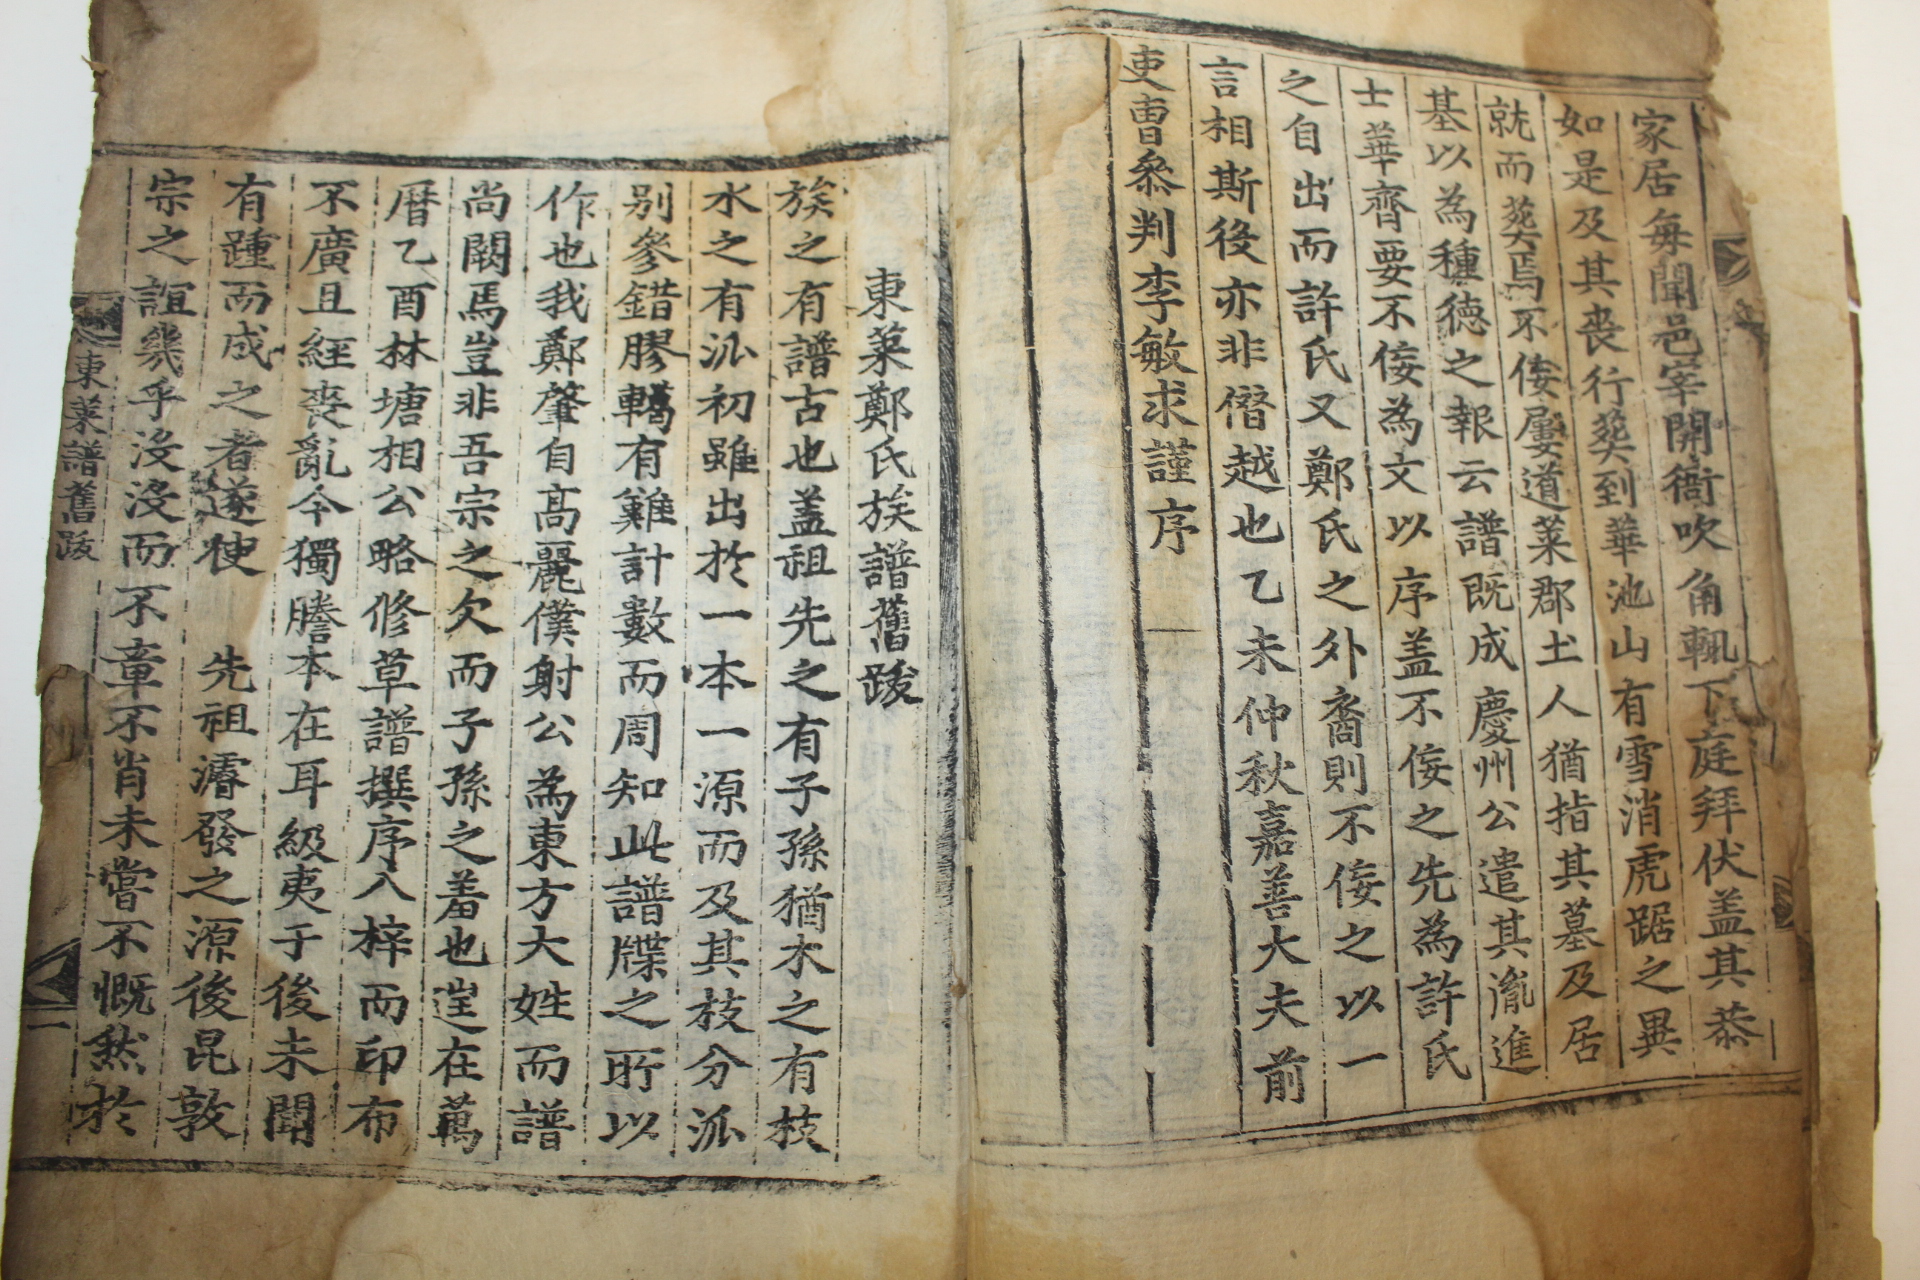 家居每聞邑宰開衙吹角輒下庭拜伏盖其恭
如是及其喪行葬到華池山有雪消虎踞之異
就而葬焉不侫屢道莱郡土人猶指其墓及居
基以為種德之報云譜既成慶州公遣其胤進
士華齊要不侫為文以序盖不侫之先為許氏
之自出而許氏又鄭氏之外裔則不侫之以一
言相斯後亦非僭越也乙未仲秋嘉善大夫前
吏曹叅判李敏求謹序
東莱鄭氏族譜舊跋
族之有譜古也盖祖先之有子孫猶木之有枝
水之有派初雖出於一本一源而及其枝分派
别參錯膠轕有難計數而周知此譜牒之所以
作也我鄭肇自高麗僕射公為東方大姓而譜
尚闕焉豈非吾宗之欠而子孫之羞也逞在萬
曆乙酉林塘相公略修草譜撰序入梓而印布
不廣且經喪亂今獨謄本在耳級夷于後未聞
有踵而成之者遂使 先祖濬發之源後昆敦
宗之誼幾乎沒沒而不章不肖未嘗不慨然於
東莱譜舊跋 一